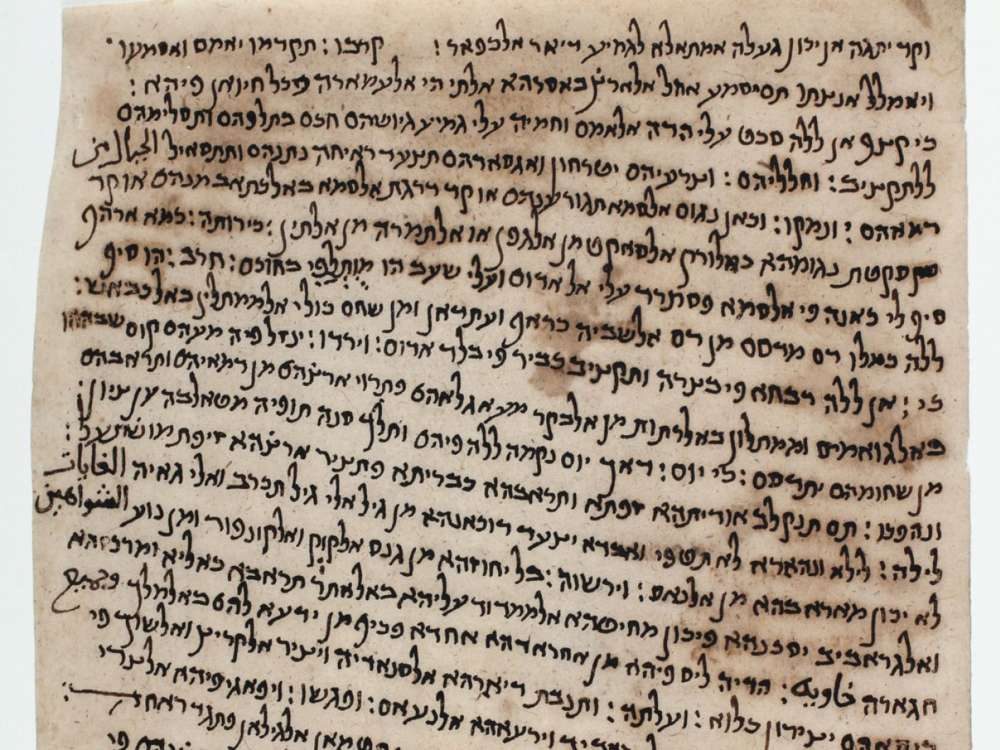 וקד יתגה אן יכון געלה אמתאלא לגמיע דיאר אלכפאר: קרבו: תקדמו יאמם ואסמעו
ויאמלל אנצתו תם יסמע אהל אלארץ באסרהא אלתי הי אלעמארה וכל חיואן פיהא:
כי קצף אן ללה סכט עלי הדה אלאמם וחמיה עלי גמיע גיושהם חכם בתלפהם ותסלימהם
ללתקציב: וחלליהם: וצרעיהם יטרחון ואגסאדהם תצעד ראיחה נתנהם ותתסאיל الجبال من
דמאהם: ונמקו: וכאן נגום אלסמא תגור ענהם או קד דרגת אלסמא כאלכתאב מנהם או קד
סקטת נגומהא כאלורק אלסאקט מן אלגפן או אלתמרה מן אלתין: כי רותה: כמא ארהף
סיף לי כאנה פי אלסמא פסתרד עלי אל אדום ועלי שעב הו מותלפי בחכם: חרב: הו סיף
ללה כמלו דם מדסם מן דם אלשביה כראף ועתדאן ומן שחם כולי אלממתלין באלכבאש:
כי: אן ללה דבחא פי בצרה ותקציב כביר פי בלד אדום: וירדו: ינזל פיה מעהם קום שבההו
באלגואמיס וממתלון באלרתות מן אלבקר מע אגלאהם פתרוי ארצהם מן דמאיהם ותראבהם
מן שחומהם יתדסם: כי יום: דאך יום נקמה ללה פיהם ותלך סנה תופיה מטאלבה ען ציון:
ונהפכו: תם תנקלב אודיתהא זפתא ותראבהא כבריתא פתציר ארצהא זיפת מושתעל:
לילה: לילא ונהארא לא תטפי ואבדא יצעד דוכאנהא מן גיל אלי גיל תכרב ואלי גאיה الغايات
לא יכון מאר בהא מן אלנאס: וירשוה: בל יחוזהא מן גנס אלקוק ואלקונפוד ומן נוע الشواهين
ואלגראביב יסכנהא פיכון מחיטהא אלממדוד עליהא באלאתר תראבא כאליא ומרכזהא
חגארה خاوية: חריה ליס פיהא מן אחראדהא אחדא פכיף מן ידעא להם באלמלך
יצירון כלוא: ועלתה: ותנבת דיארהא אלסנאדיה ויציר אלקריץ ואלשוך פי
וירעאהא אלנעאם: ופגשו: ויפאגי פיהא אלצדי